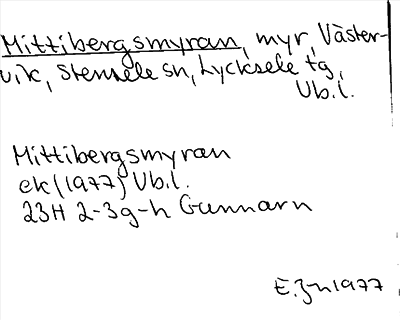 Mittibergsmyran, myr, Väster-
vik, Stensele sn, Lycksele tg,
Vb.l.
Mittibergsmyran
ek (1977) Vb.l.
23H 2-3g-h Gunnarn
E. Jn 1977